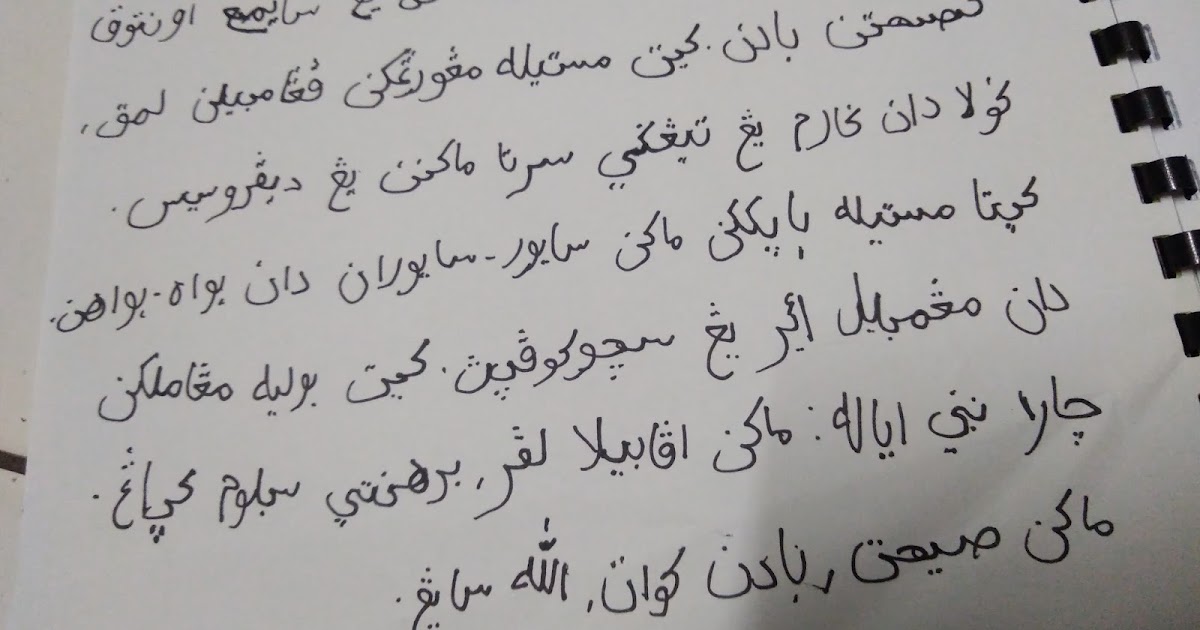 يڠ سايمبڠ اونتوق
کصيحتن بادن. کيت مستيله مڠورڠکن ڤڠامبيلن لمق،
ݢولا دان ݢارم يڠ تيڠݢي سرتا ماکنن يڠ دڤروسيس.
کيتا مستيله باڽقکن ماکن سايور-سايوران دان بواه-بواهن.
دان مڠمبيل اير يڠ سچوکوڤڽ. کيت بوليه مڠاملکن
چارا نبي اياله: ماکن اڤابيلا لڤر، برهنتي سبلوم کڽڠ.
ماکن صيحت، بادن کوات، الله سايڠ.